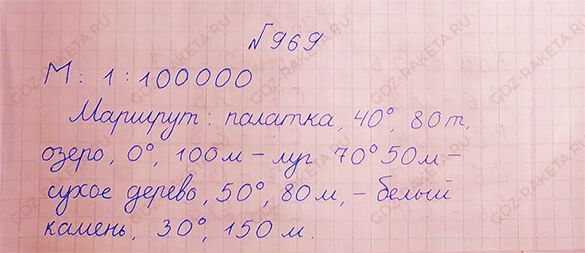 №969
М: 1:100000
Маршрут: палатка, 40°, 80 м,
озеро, 0°, 100 м - луг 70° 50 м -
сухое дерево, 50°, 80 м, - белый
камень, 30°, 150 м.
GDZ-RAKETA.RU